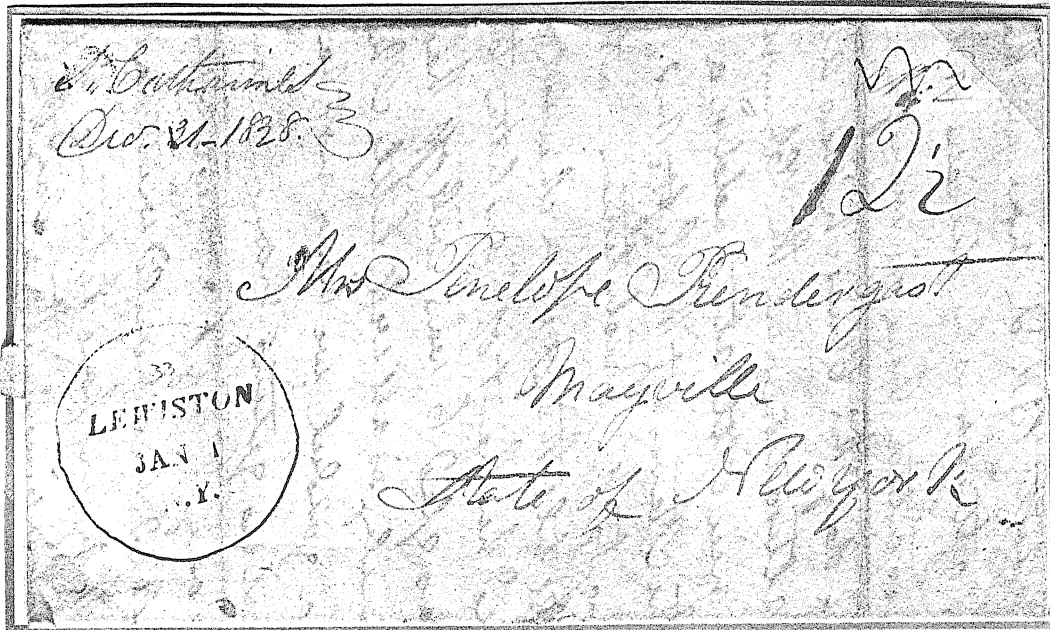 St. Catharines
Dec. 31-1828.
12½
Mrs Penelope Prendergast
Mayville
State of New York
33
LEWISTON
JAN 1
N.Y.